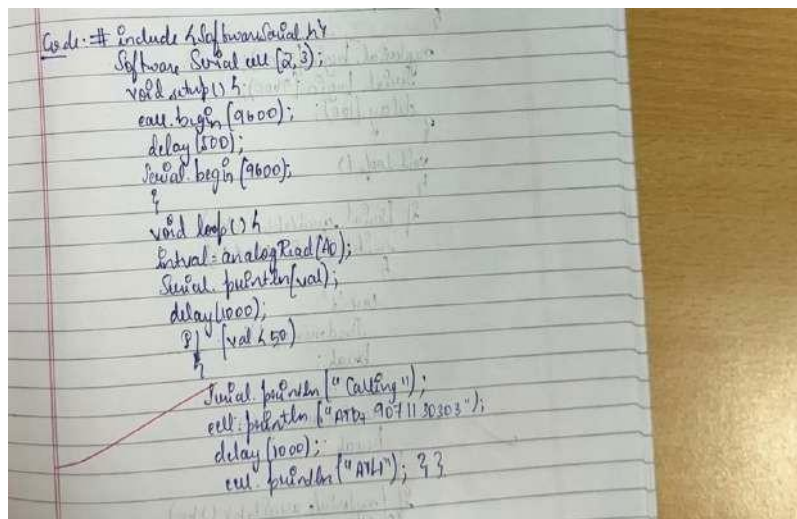 Code:- # include <SoftwareSerial.h>
Software Serial cell (2,3);
void setup() {
cell.begin (9600);
delay (500);
Serial.begin (9600);
}
void loop() {
int val = analogRead (A0);
Serial.println (val);
delay (1000);
if (val < 50)
{
Serial.println ("Calling");
cell.println ("ATD+ 9071130303");
delay (1000);
cell.println (" "); } }